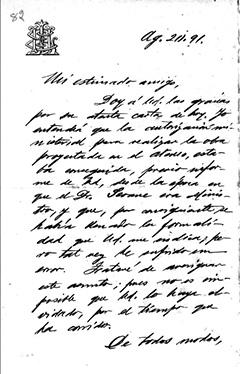 82
Ag. 21/91.
Mi estimado amigo,
Doy á Ud. las gracias
por su atenta carta de hoy. Yo
entendí que la autorización mi-
nisterial para realizar la obra
proyectada en el Ateneo, esta-
ba conseguida, previo infor-
me de Ud., desde la época en
que el Dr. era Minis-
tro, y que, por consiguiente, se
había llenado la formali-
dad que Ud. me indica; pe-
ro tal vez he sufrido un
error. Trataré de averiguar
este asunto; pues no es im-
posible que Ud. lo haya ol-
vidado, por el tiempo que
ha corrido.
De todos modos,